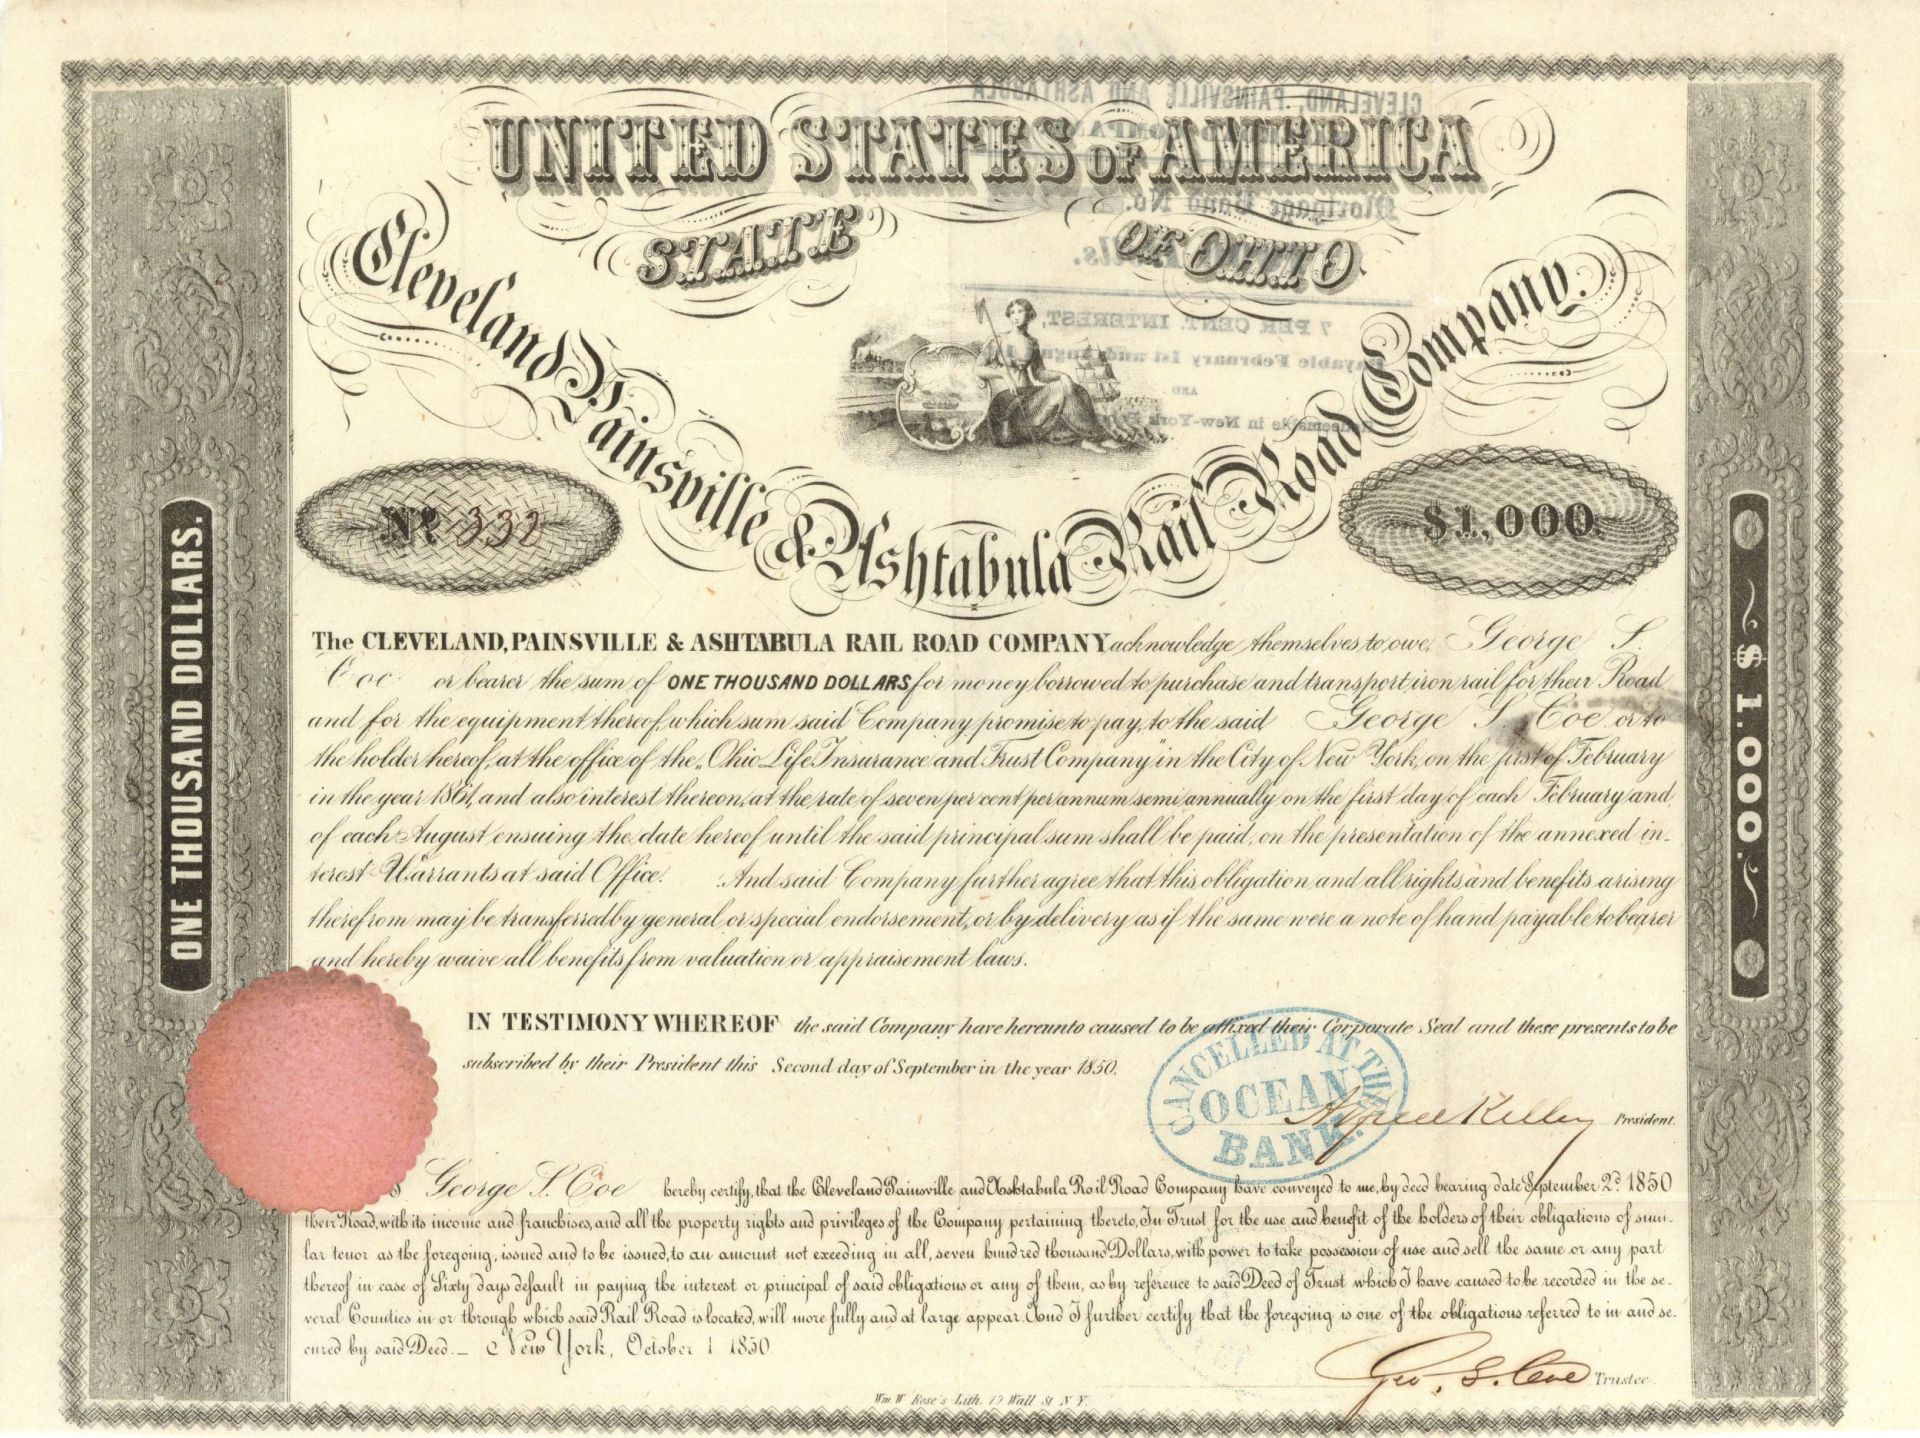 UNITED STATES OF AMERICA
STATE OF OHIO
Cleveland Painsville & Ashtabula Rail Road Company.
CLEVELAND, PAINSVILLE AND ASHTABULA
Mortgage Bond No.
7 PER CENT. INTEREST,
Payable February 1st and August
AND
in New-York
No 332
$1,000.
ONE THOUSAND DOLLARS.
$ 1.000.
The CLEVELAND, PAINSVILLE & ASHTABULA RAIL ROAD COMPANY acknowledge themselves to owe, George S.
Coe or bearer the sum of ONE THOUSAND DOLLARS for money borrowed to purchase and transport iron rail for their Road
and for the equipment thereof, which sum said Company promise to pay, to the said George S Coe or to
the holder hereof, at the office of the „Ohio Life Insurance and Trust Company" in the City of New York, on the first of February
in the year 1861, and also interest thereon, at the rate of seven per cent per annum semi annually on the first day of each February and
of each August ensuing the date hereof until the said principal sum shall be paid, on the presentation of the annexed in-
terest Warrants at said Office. And said Company further agree that this obligation and all rights and benefits arising
therefrom may be transferred by general or special endorsement, or by delivery as if the same were a note of hand payable to bearer
and hereby waive all benefits from valuation or appraisement laws.
IN TESTIMONY WHEREOF the said Company have hereunto caused to be affixed their Corporate Seal and these presents to be
subscribed by their President this Second day of September in the year 1850.
CANCELLED AT THE
OCEAN
BANK.
Alfred Kelley President.
George S. Coe hereby certify, that the Cleveland Painsville and Ashtabula Rail Road Company have conveyed to me, by deed bearing date September 2d 1850
their Road, with its income and franchises, and all the property rights and privileges of the Company pertaining thereto, In Trust for the use and benefit of the holders of their obligations of simi-
lar tenor as the foregoing, issued and to be issued, to an amount not exceeding in all, seven hundred thousand Dollars, with power to take possession of use and sell the same or any part
thereof in case of Sixty days default in paying the interest or principal of said obligations or any of them, as by reference to said Deed of Trust which I have caused to be recorded in the se-
veral Counties in or through which said Rail Road is located, will more fully and at large appear. And I further certify that the foregoing is one of the obligations referred to in and se-
cured by said Deed.— New York, October 1 1850
Geo. S. Coe Trustee.
Wm. W Rose's Lith. 17 Wall St N. Y.